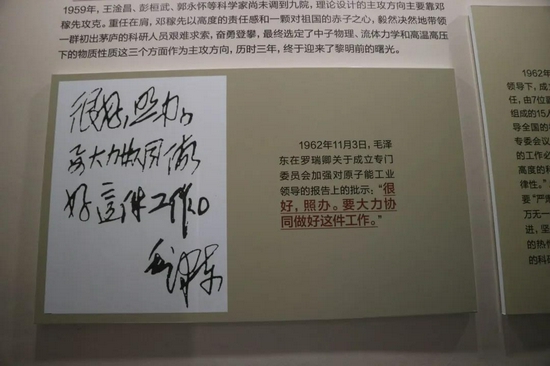 1959年，王淦昌、彭桓武、郭永怀等科学家尚未调到九院，理论设计的主攻方向主要靠邓
稼先攻克。重任在肩，邓稼先以高度的责任感和一颗对祖国的赤子之心，毅然决然地带领
一群初出茅庐的科研人员艰难求索，奋勇登攀，最终选定了中子物理、流体力学和高温高压
下的物质性质这三个方面作为主攻方向，历时三年，终于迎来了黎明前的曙光。
很好，照办。
要大力协同做
好這件工作。
毛泽东
1962年11月3日，毛泽
东在罗瑞卿关于成立专门
委员会加强对原子能工业
领导的报告上的批示：“很
好，照办。要大力协
同做好这件工作。”
1962年
领导下，成
任，由7位副
组成的15人
导全国的
专委会议
的工作必
高度的科
律性。”
要“严肃
万无一
进，坚
的热情
的科研